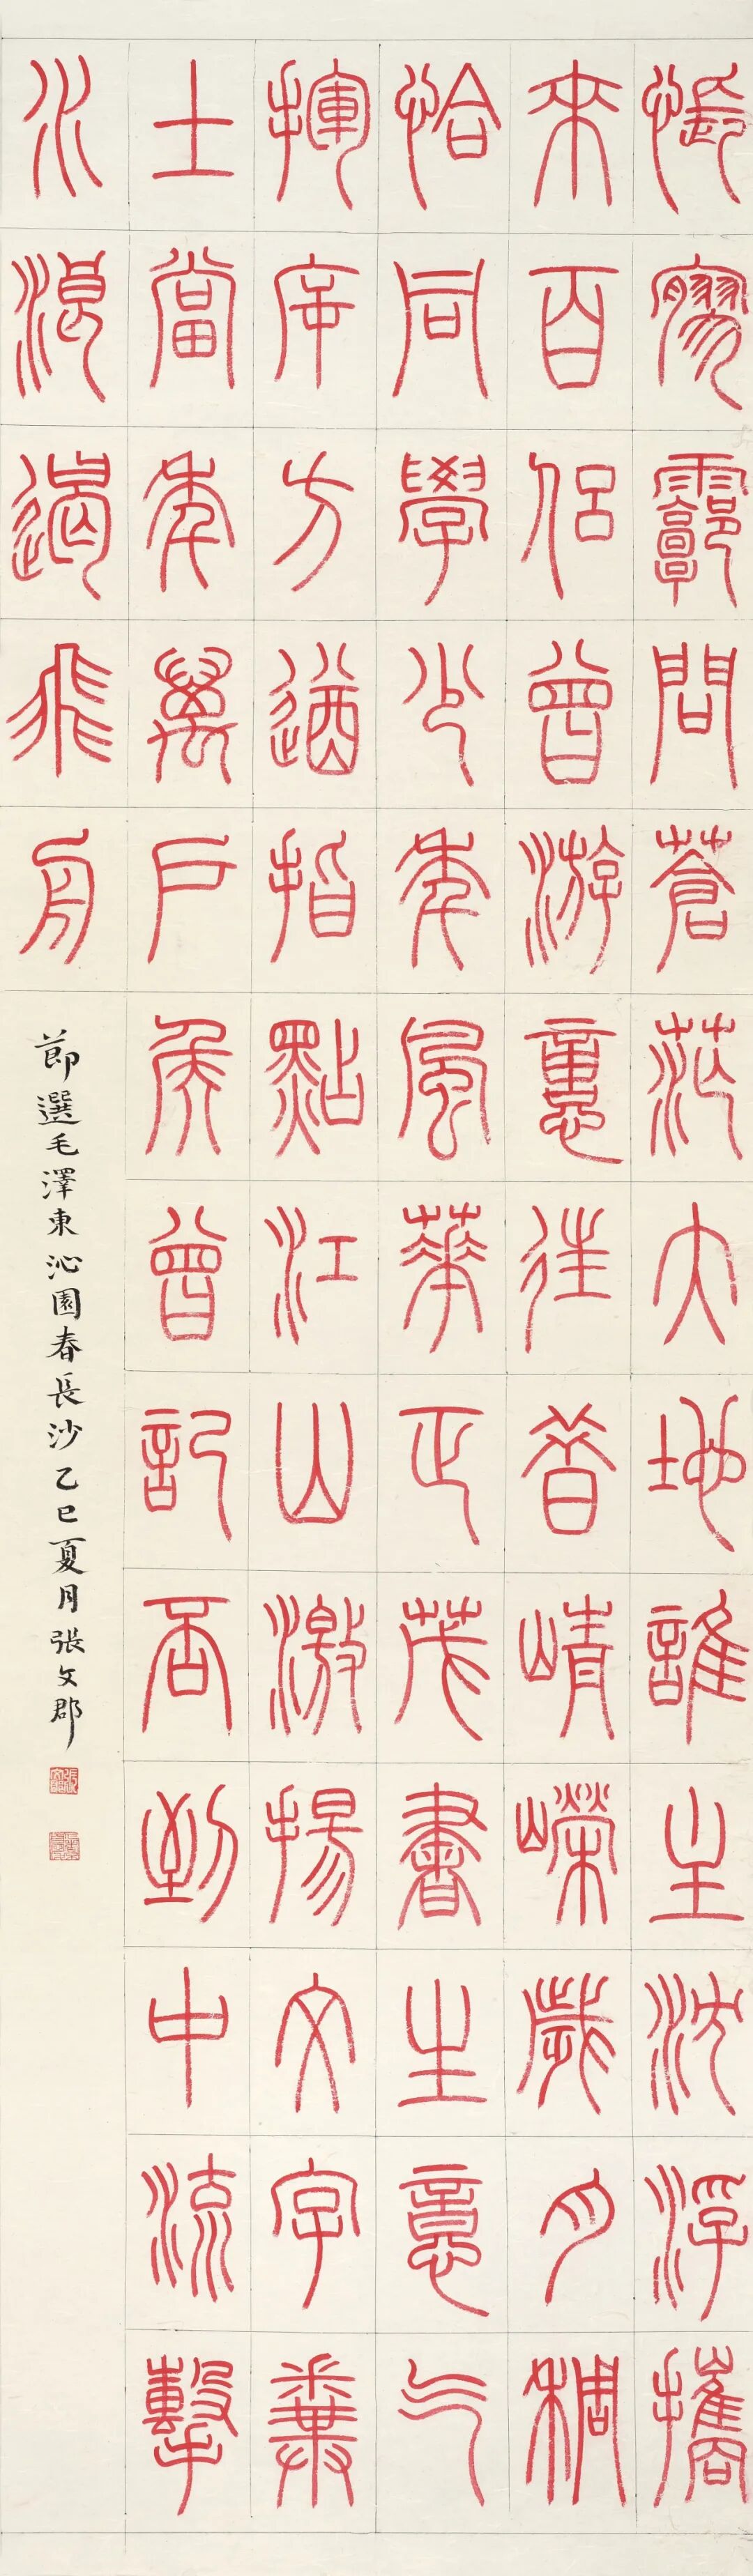 悵寥霩問蒼茫大地誰主沈浮攜
來百侶曾游憶往昔崢嶸歲月稠
恰同學少年風華正茂書生意气
揮斥方遒指點江山激揚文字糞
土當年萬戶侯曾記否到中流擊
水浪遏飛舟
節選毛澤東沁園春長沙乙巳夏月張文郡